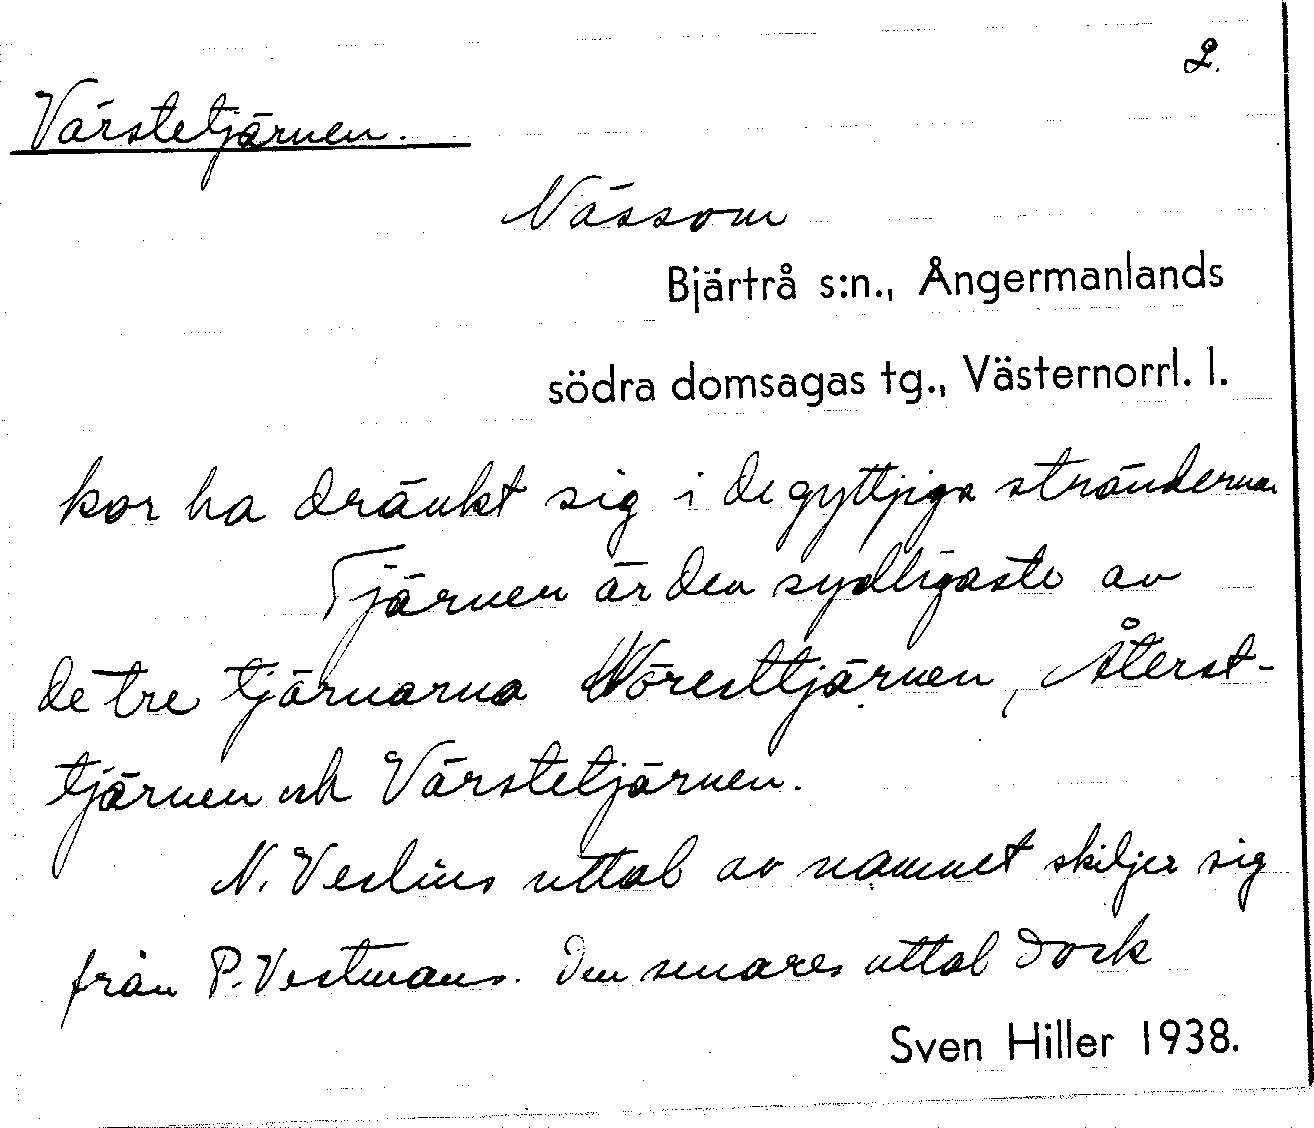 2.
Värstetjärnen.
Nässom
Bjärtrå s:n., Ångermanlands
södra domsagas tg., Västernorrl. l.
kor ha dränkt sig i de gyttjiga stränderna
Tjärnen är den sydligaste av
de tre tjärnarna Wöresttjärnen, Återst-
tjärnen och Värstetjärnen.
N. Veslins uttal av namnet skiljer sig
från P. Vestmans. Den senares uttal dock
Sven Hiller 1938.